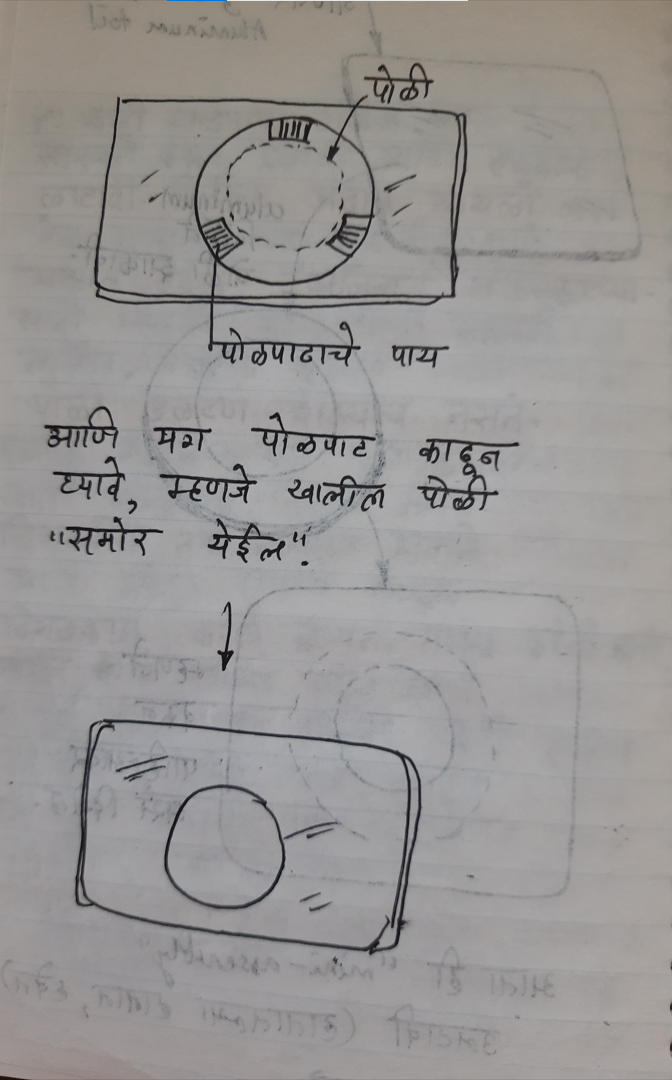 पोळी
पोळपाटाचे पाय
आणि मग पोळपाट काढून
घ्यावे, म्हणजे खालील पोळी
"समोर येईल".